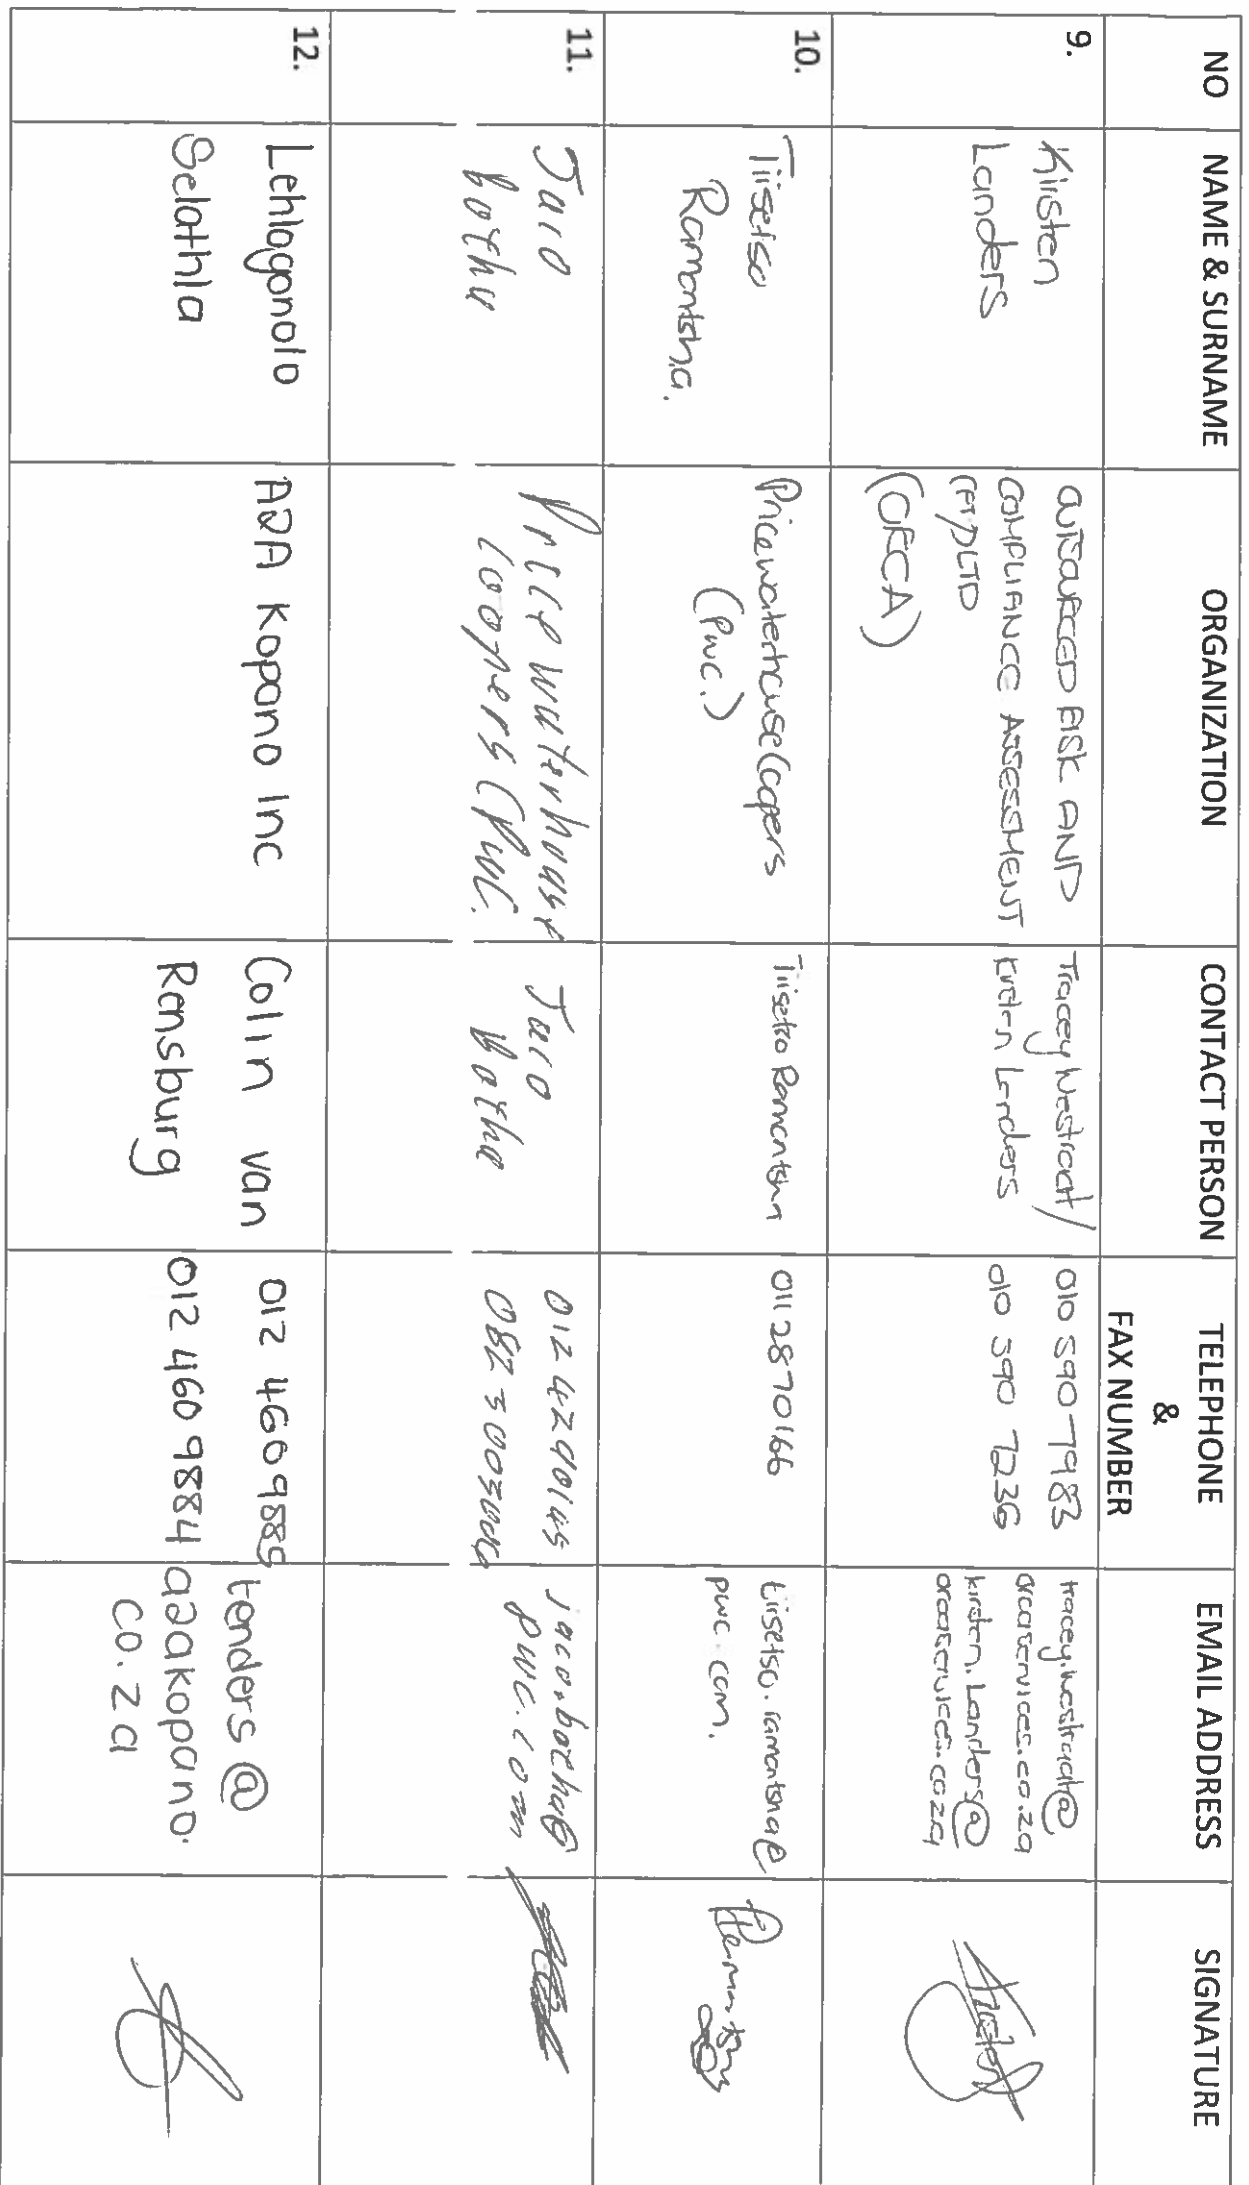 NO
NAME & SURNAME
ORGANIZATION
CONTACT PERSON
TELEPHONE
&
FAX NUMBER
EMAIL ADDRESS
SIGNATURE
9.
Kirsten
Landers
OUTSOURCED RISK AND
COMPLIANCE ASSESSMENT
(PTY)LTD
(ORCA)
Tracey Westraat/
Kirsten Landers
010 590 7983
010 590 7236
tracey.westraat@
orcaservices.co.za
kirsten.Landers@
orcaservices.co.za
10.
Tiisetso
Ramontsha.
PricewaterhouseCoopers
(PwC.)
Tiisetso Ramontsha
011 2870166
tiisetso.ramontsha@
pwc.com.
11.
Jaco
Botha
Pricewaterhouse
Coopers (PwC.
Jaco
Botha
012 4290145
jaco.botha@
pwc.com
12.
Lehlogonolo
Selathla
A2A Kopano Inc
Colin van
Rensburg
012 460 9889
012 460 9884
tenders@
a2akopano.
co.za